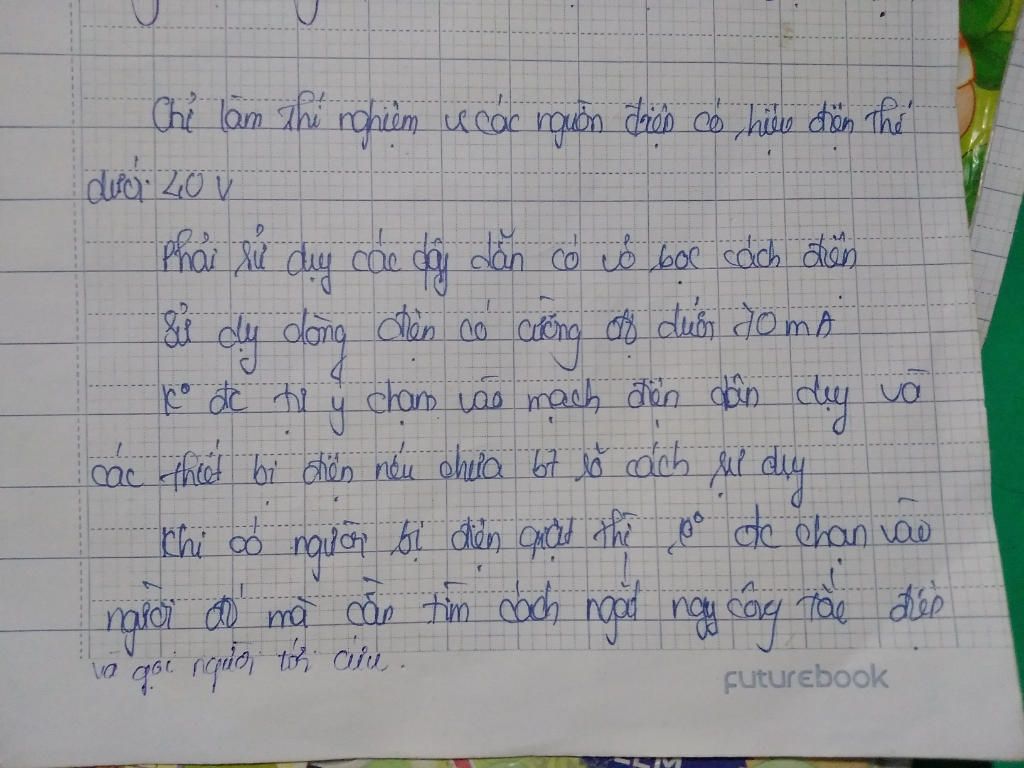 Chỉ làm thí nghiệm vs các nguồn điện có hiệu điện thế
dưới 40 V
Phải sử dụg các dây dẫn có vỏ bọc cách điện
Sử dụg dòng điện có cường độ dưới 70 mA
K° đc tự ý chạm vào mạch điện dân dụg và
các thiết bị điện nếu chưa bt rõ cách sử dụg
Khi có người bị điện giật thì k° đc chạm vào
người đó mà cần tìm cách ngắt ngay công tắc điện
và gọi người tới cứu.
futurebook